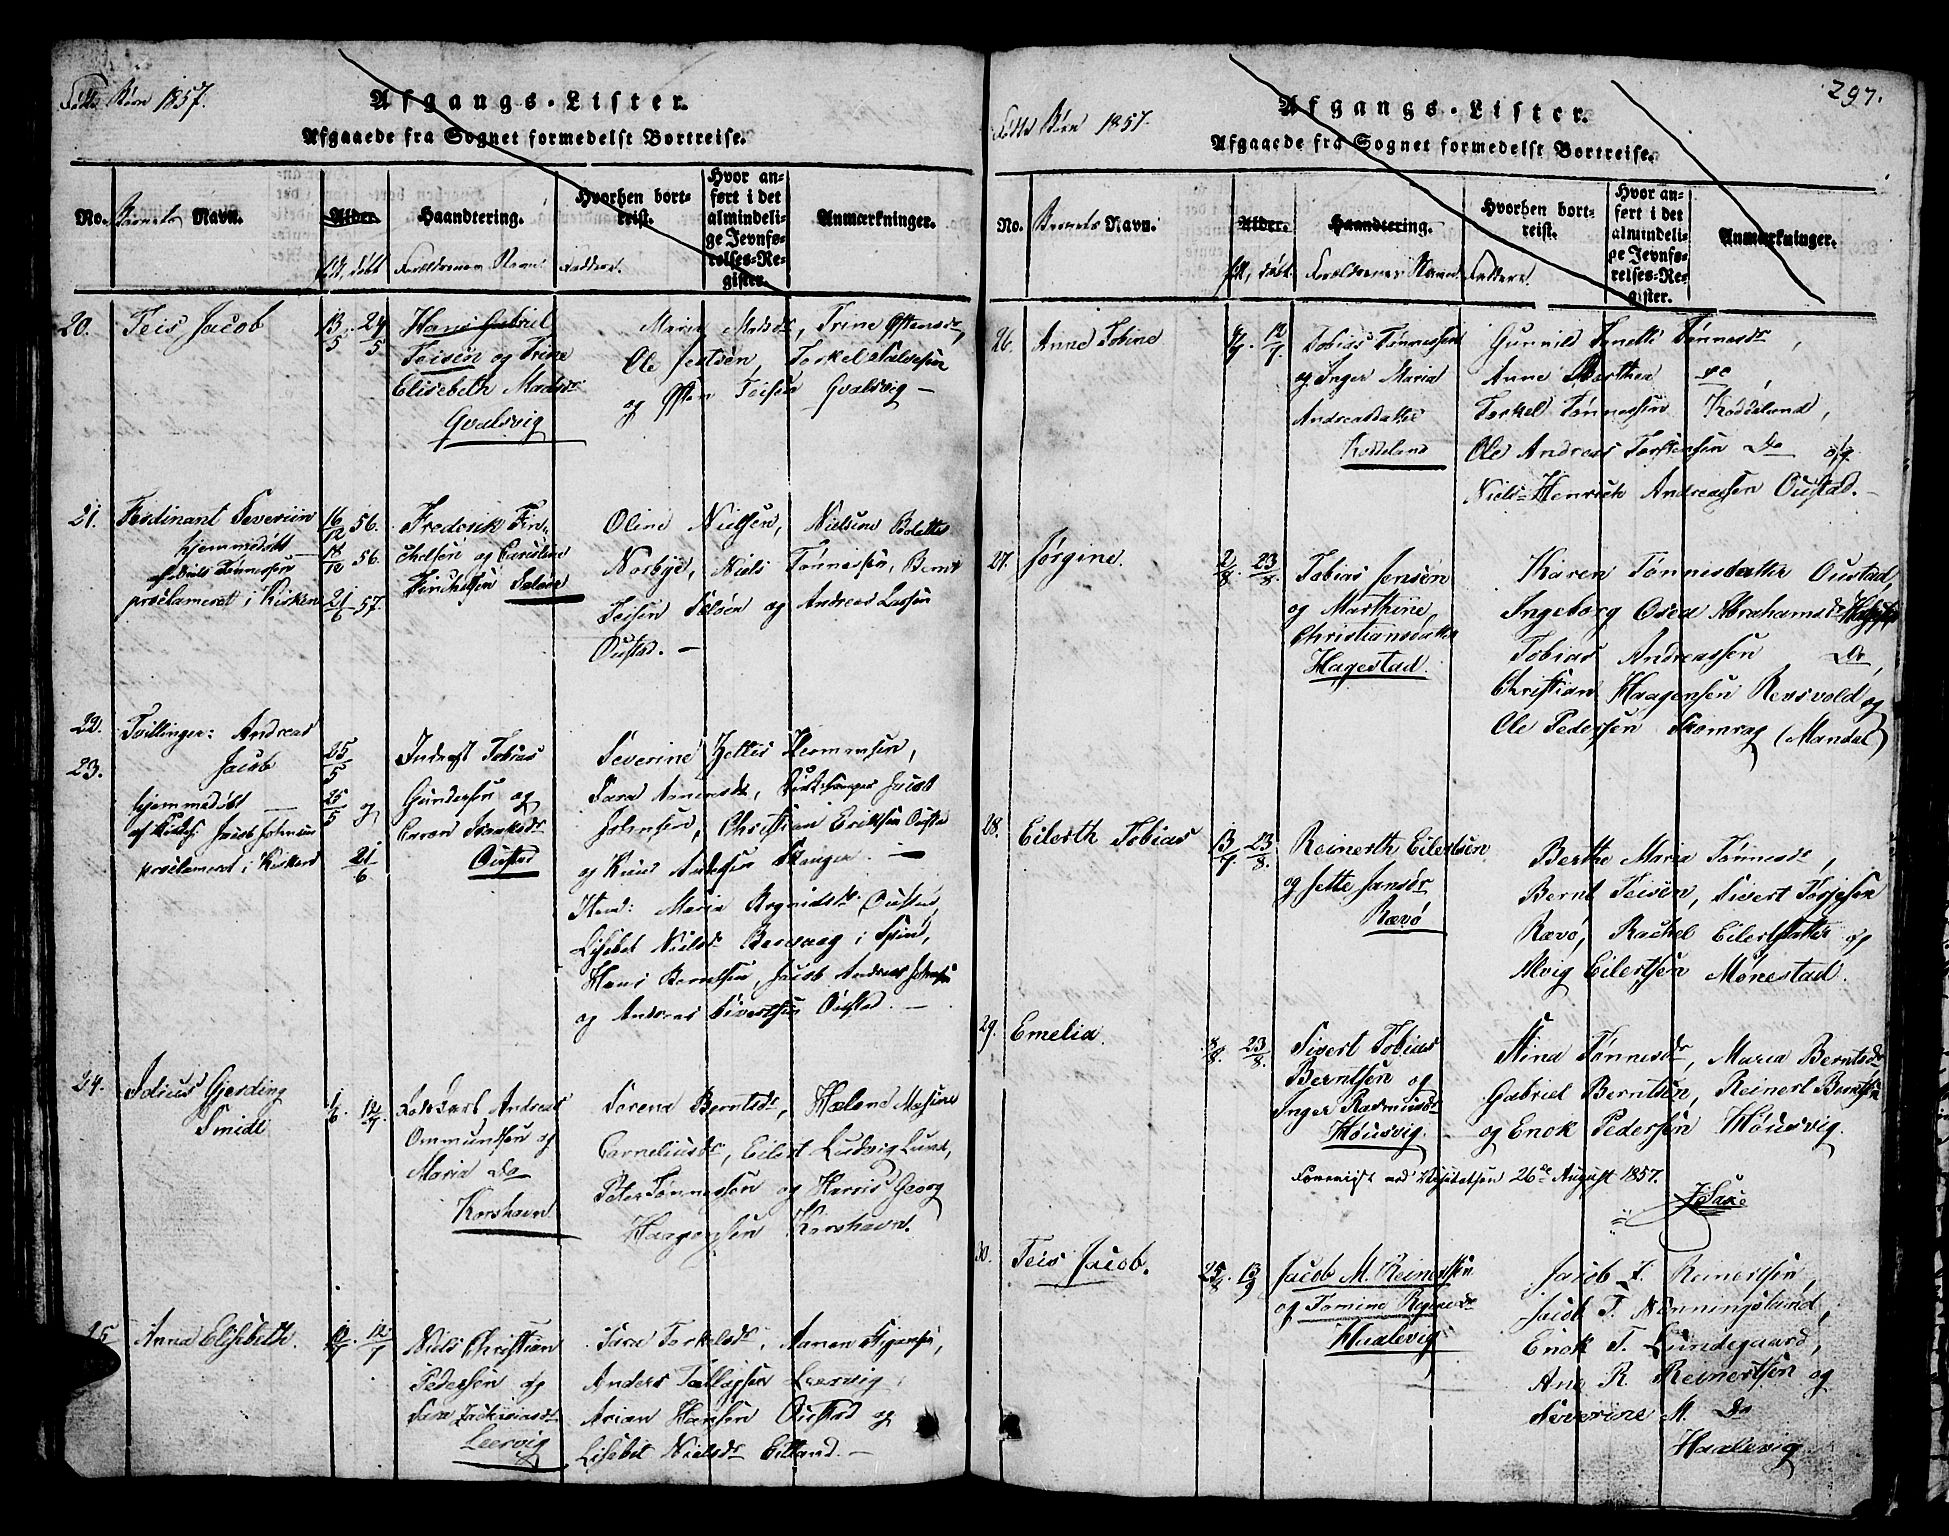 Fødte Børn 1857.
Afgangs-Lister.
Afgaaede fra Sognet formedelst Bortreise.
No.
Barnets Navn.
Alder.
Haandtering.
Hvorhen bort-
reist.
Hvor an-
ført i det
almindeli-
ge Jevnfø-
relses-Re-
gister.
Anmærkninger.
født, døbt
Forældrenes Navn
Faddere.
20.
Teis Jacob
13/5. 24/5
Hans Gabriel
Teisen og Trine
Elisebeth Madsdr
Gvalsvig
Maria Madsdr, Trine Ostensdr,
Ole Jensen, Torkel Salvesen
og Osten Teisen Gvalsvig —
21.
Ferdinant Severiin
hjemmedøbt —
af Niels Tønnessen
proclameret i Kirken
16/12 56.
18/12 56.
21/6 57.
Frederik Fin-
chelsen og Caroline
Finchelsen Selöen
Oline Nielsen, Nielsine Bolette
Norbye, Niels Tønnessen, Bernt
Teisen Selöen og Andreas Larsen
Oustad. —
22.
23.
Tvillinger: Andreas
Jacob
hjemmedøbt —
af Kirkes: Jacob Johnsen
proclameret i Kirken
25/5
25/5 og
21/6
Inderst Tobias
Gundersen og
Caren Isaksdr
Oustad
Severine Zettis Hermansen,
Sara Arnensdr, Kirkesanger Jacob
Johnsen, Christian Eriksen Oustad
og Knud Andersen Skauger. —
Item: Maria Rognidsdr Oustad,
Lisebet Nielsdr Barevaag i Spind,
Hans Berntsen, Jacob Andreas Johnsen
og Andreas Sivertsen Oustad. —
24.
Julius Gjerding
Smidt
1/6. 12/7
Lods Lars Andreas
Ommundsen og
Maria Do
Korshavn
Serena Berntsdr, Helene Mosine
Corneliusdr, Eilert Ludvig Lund,
Peter Tønnessen og Harris Georg
Haagensen Korshavn.
25
Anna Elisebeth.
12/7
Niels Christian
Pedersen og
Sara Zakariasdr
Leervig
Sara Torkelsdr,
Anders Tallagsen Leervig
Arian Hansen Oustad og
Lisebet Nielsdr Eitland. —
297.
Fødte Børn 1857.
Afgangs-Lister.
Afgaaede fra Sognet formedelst Bortreise.
No.
Barnets Navn.
Alder.
Haandtering.
Hvorhen bort-
reist.
Hvor an-
ført i det
almindeli-
ge Jevnfø-
relses-Re-
gister.
Anmærkninger.
født, døbt.
Forældrenes Navn
Faddere.
26.
Anne Tobine
12/7.
Tobias Tønnessen
og Inger Maria
Andreasdatter
Koddeland
Gunnild Tonette Tønnesdr,
Anne Marthea Do,
Torkel Tønnessen Koddeland,
Ole Andreas Torkensen Do og
Niels Henrich Andreassen Oustad. —
27.
Jørgine.
2/8. 23/8.
Tobias Jensen
og Marthine,
Christiansdatter
Hagestad
Karen Tønnisdatter Oustad,
Ingeborg Osea Abrahamsdr Hagestad
Tobias Andreassen Do,
Christian Haagensen Rensvold og
Ole Pedersen Skomrag (Mandal)
28.
Eilerth Tobias
13/7 23/8.
Reinerth Eilertsen
og Jette Jansdr
Rævö
Berthe Maria Tønnesdr,
Bernt Teisen, Sivert Torjesen
Rævö, Rachel Eilertsdatter og
Alvig Eilertsen Mönestad.
29.
Emelia.
3/8. 23/8.
Sivert Tobias
Berntsen og
Inger Rasmusdr
Höusvig.
Stina Tønnesdr, Maria Berntsdr
Gabriel Berntsen, Reinert Berntsen
og Enok Pedersen Höusvig.
Foreviist ved Visitatsen 26de August 1857.
30.
Teis Jacob.
25/8. 13/9
Jacob M. Reinertsen
og Tomine Reginedr
Haalevig
Jacob T. Reinertsen,
Jacob T. Nönningsland,
Enok T. Lundegaard,
Ane R. Reinertsen og
Severine M. Do
Haalevig